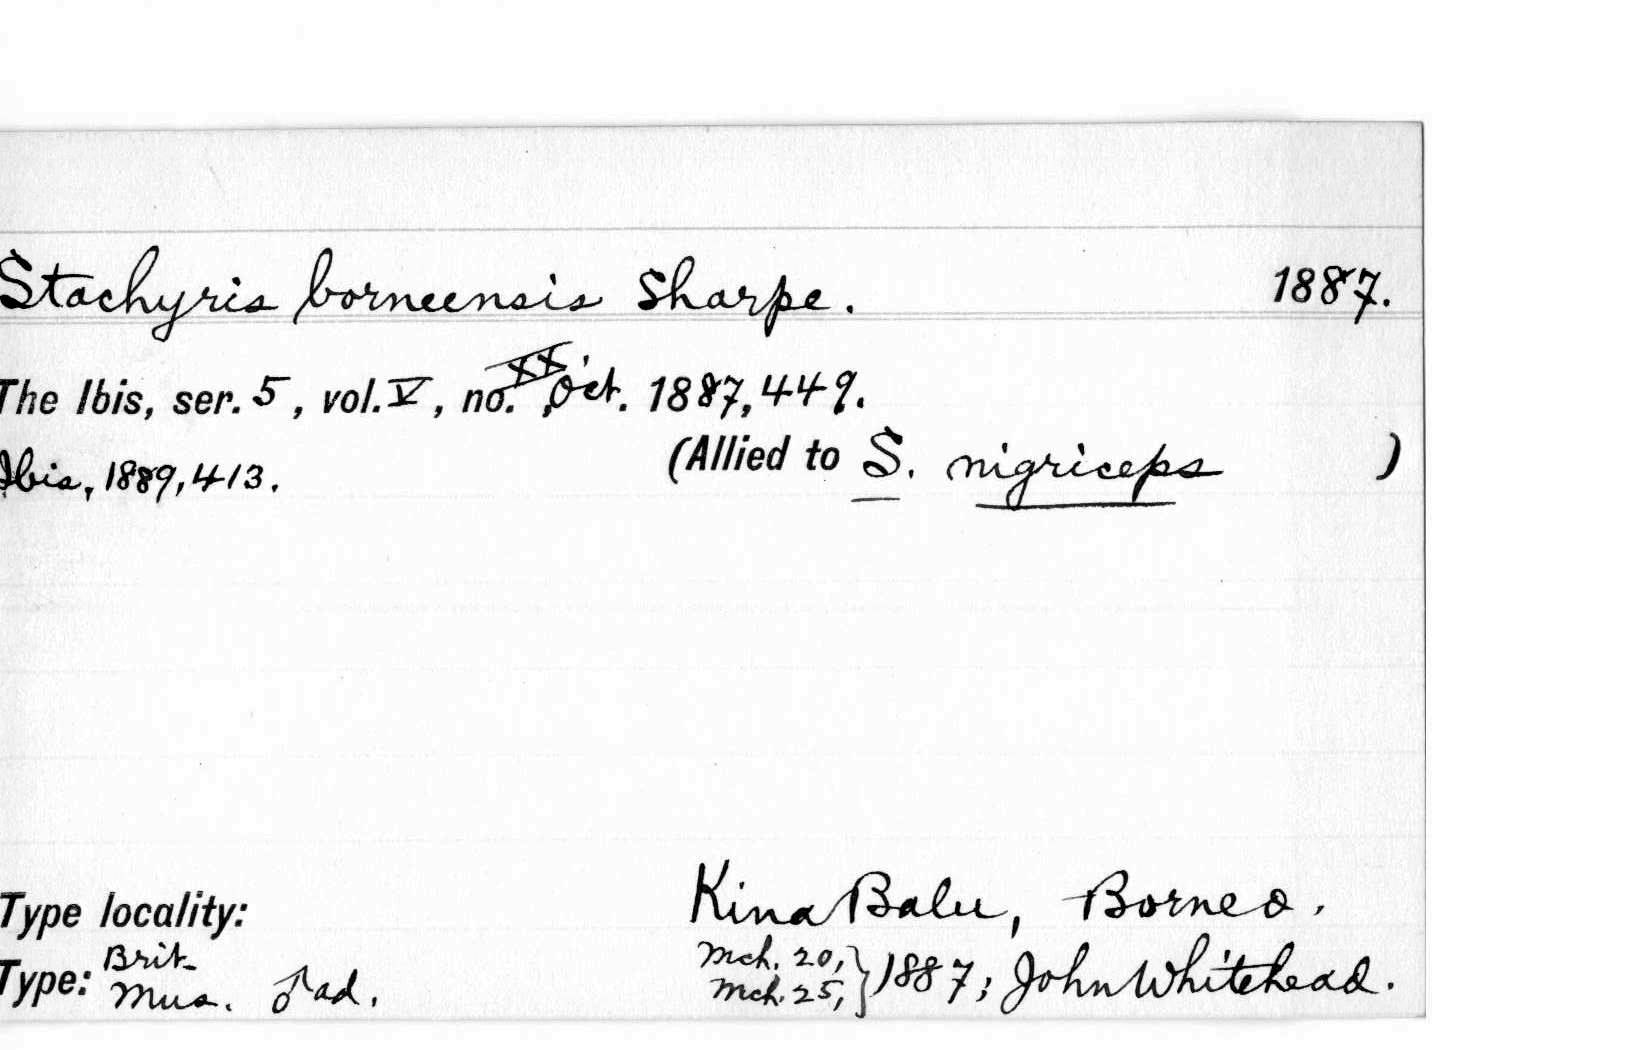 Stachyris borneensis Sharpe. 1887.
The Ibis, ser. 5, vol. V, no. XX, Oct. 1887, 449.
Ibis, 1889, 413. (Allied to S. nigriceps )
Type locality: Kina Balu, Borneo.
Type: Brit. Mus. ♂ ad. Mch. 20, Mch. 25, } 1887; John Whitehead.